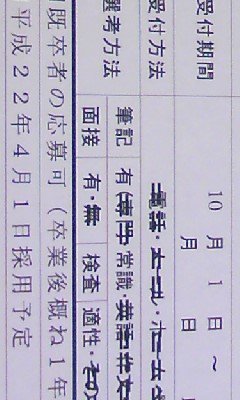 受付期間 10月 1日 ～
月 日
受付方法 電話・
選考方法 筆記 有(専門・常識・英語・作文
面接 有・無 検査 適性・その
既卒者の応募可（卒業後概ね1年
平成22年4月1日採用予定